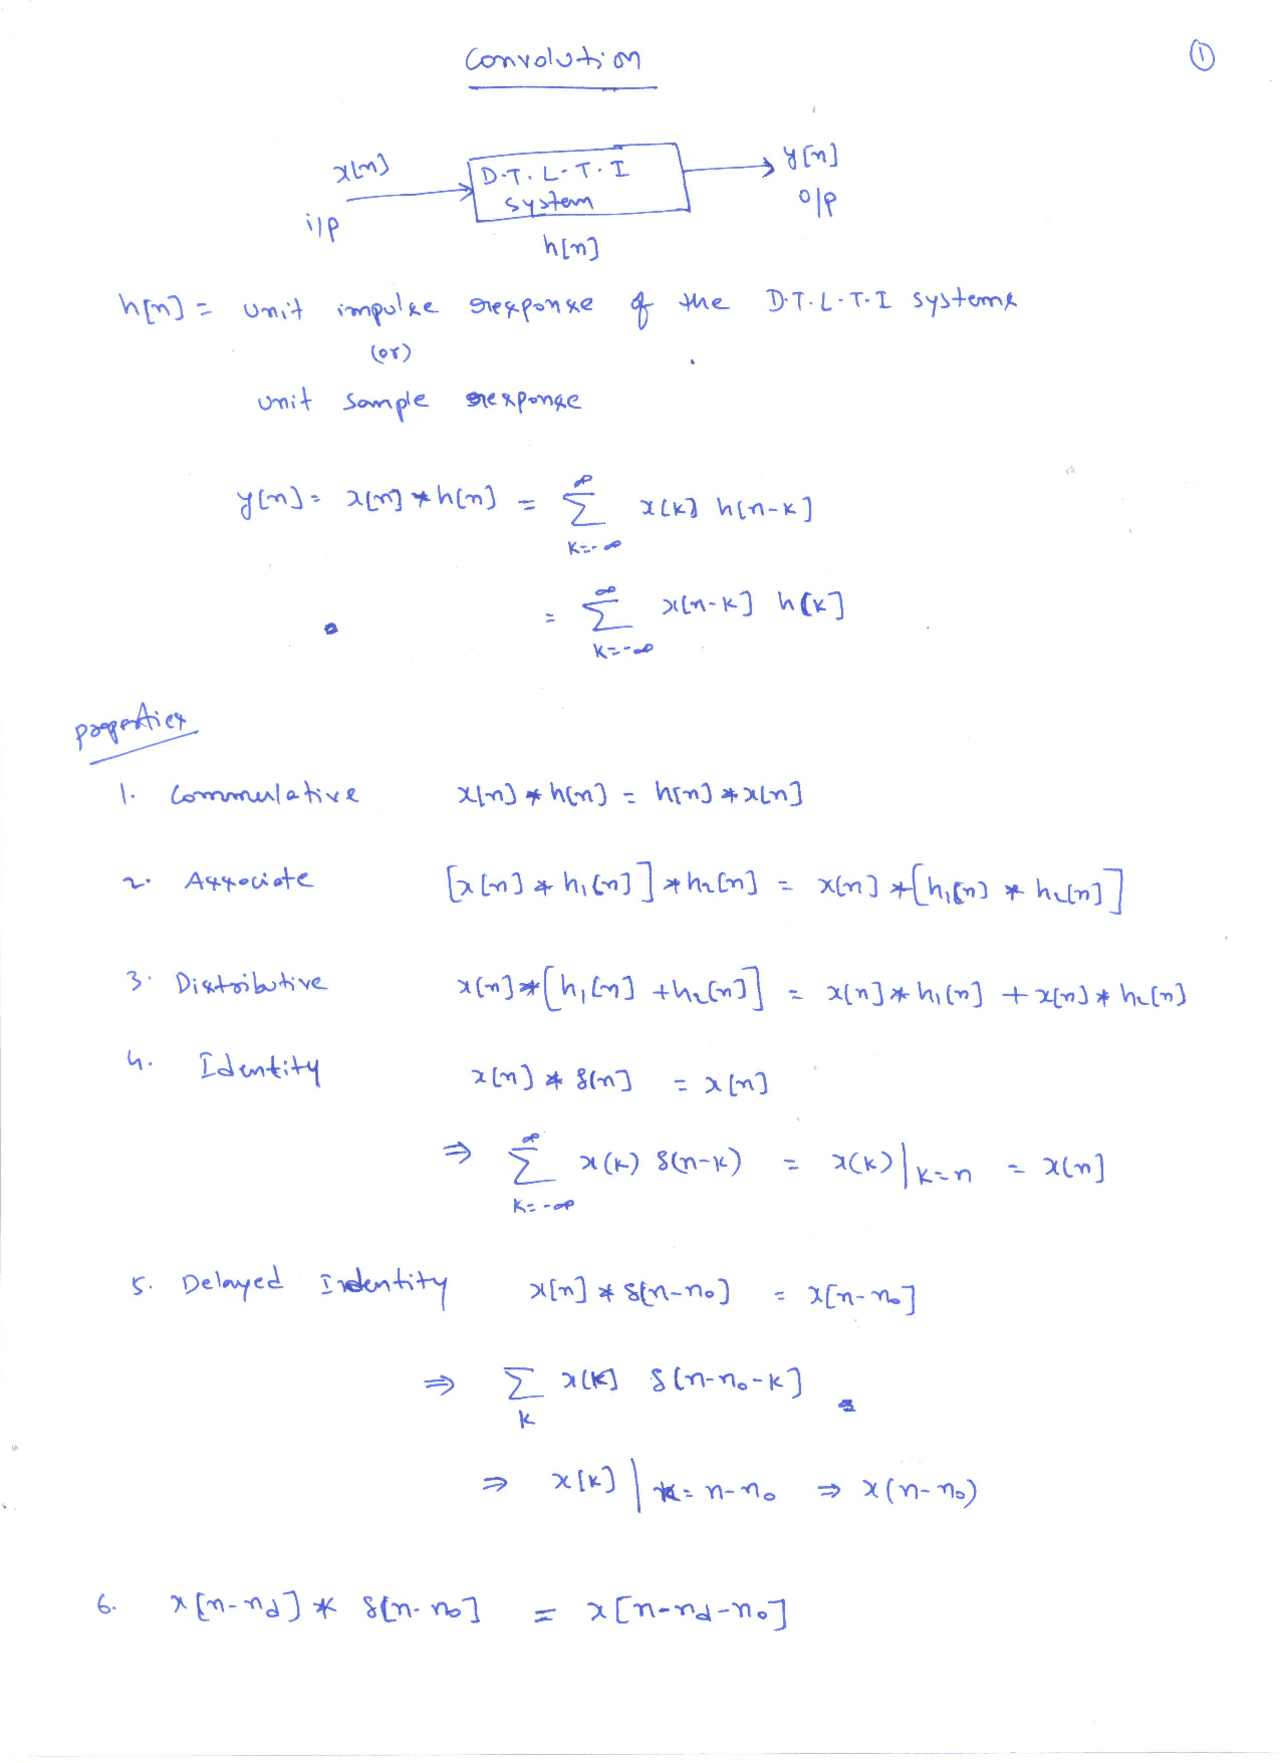 Convolution
①
x[n]
D.T.L.T.I
y[n]
i/p
system
o/p
h[n]
h[n] = unit impulse response of the D.T.L.T.I systems
(or)
unit sample response
y[n] = x[n] * h[n] = ∑ k=-∞ ∞ x[k] h[n-k]
= ∑ k=-∞ ∞ x[n-k] h[k]
properties
1. Commulative x[n] * h[n] = h[n] * x[n]
2. Associate [x[n] * h₁[n]] * h₂[n] = x[n] * [h₁[n] * h₂[n]]
3. Distributive x[n] * [h₁[n] + h₂[n]] = x[n] * h₁[n] + x[n] * h₂[n]
4. Identity x[n] * δ[n] = x[n]
⇒ ∑ k=-∞ ∞ x(k) δ(n-k) = x(k)|k=n = x[n]
5. Delayed Indentity x[n] * δ[n-n₀] = x[n-n₀]
⇒ ∑ k x[k] δ[n-n₀-k]
⇒ x[k] | k = n-n₀ ⇒ x(n-n₀)
6. x[n-nd] * δ[n-n₀] = x[n-nd-n₀]